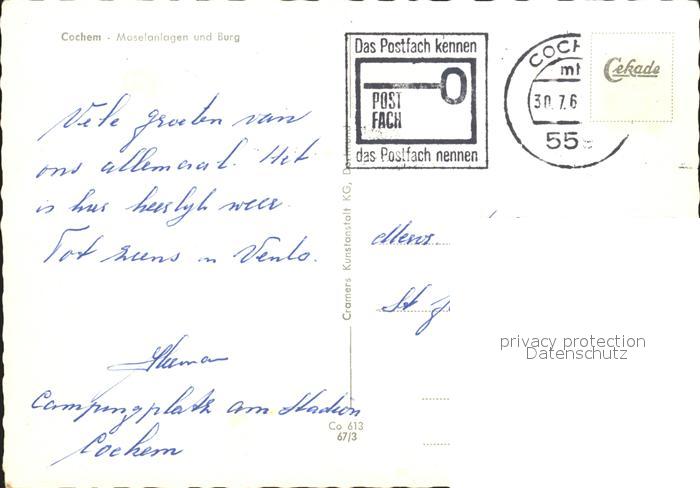 Cochem - Moselanlagen und Burg
Das Postfach kennen
POST
FACH
das Postfach nennen
COCH
30.7.6
55
Cekade
Vele groeten van
ons allemaal. Het
is hier heerlyk weer.
Tot ziens in Venlo.
Campingplatz am Stadion
Cochem
Cramers Kunstanstalt KG, Dortmund
Co 613
67/3
Mevr.
St
privacy protection
Datenschutz